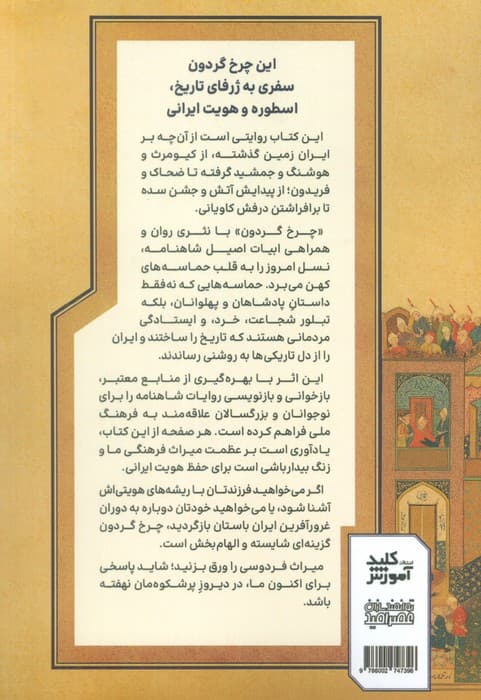 این چرخ گردون
سفری به ژرفای تاریخ،
اسطوره و هویت ایرانی
این کتاب روایتی است از آن‌چه بر
ایران زمین گذشته، از کیومرث و
هوشنگ و جمشید گرفته تا ضحاک و
فریدون؛ از پیدایش آتش و جشن سده
تا برافراشتن درفش کاویانی.
«چرخ گردون» با نثری روان و
همراهی ابیات اصیل شاهنامه،
نسل امروز را به قلب حماسه‌های
کهن می‌برد. حماسه‌هایی که نه‌فقط
داستان پادشاهان و پهلوانان، بلکه
تبلور شجاعت، خرد، و ایستادگی
مردمانی هستند که تاریخ را ساختند و ایران
را از دل تاریکی‌ها به روشنی رساندند.
این اثر با بهره‌گیری از منابع معتبر،
بازخوانی و بازنویسی روایات شاهنامه را برای
نوجوانان و بزرگسالان علاقه‌مند به فرهنگ
ملی فراهم کرده است. هر صفحه از این کتاب،
یادآوری است بر عظمت میراث فرهنگی ما و
زنگ بیدارباشی است برای حفظ هویت ایرانی.
اگر می‌خواهید فرزندتان با ریشه‌های هویتی‌اش
آشنا شود، یا می‌خواهید خودتان دوباره به دوران
غرورآفرین ایران باستان بازگردید، چرخ گردون
گزینه‌ای شایسته و الهام‌بخش است.
میراث فردوسی را ورق بزنید؛ شاید پاسخی
برای اکنون ما، در دیروز پرشکوه‌مان نهفته
باشد.
انتشارات
کلید
آموزش
9 786002 747396